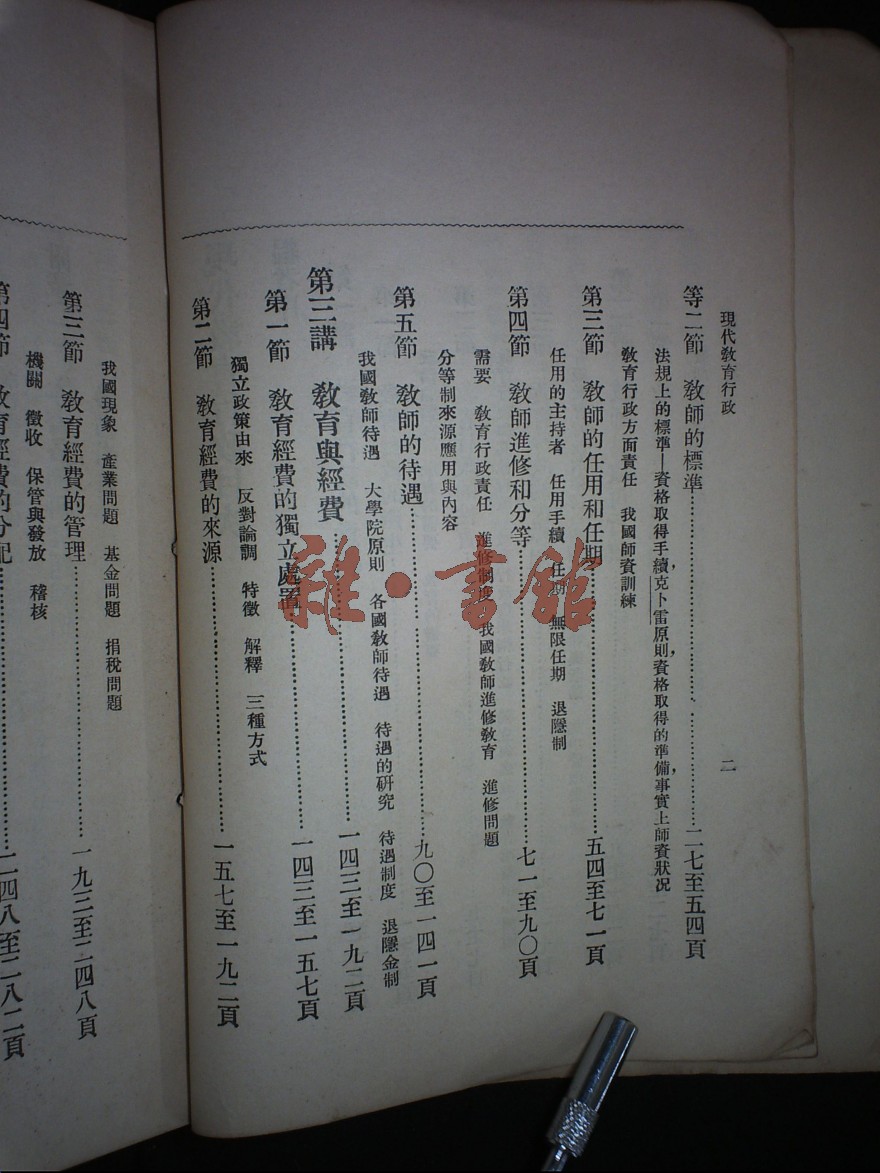 現代教育行政
二
等二節　教師的標準……二七至五四頁
法規上的標準—資格取得手續，克卜雷原則，資格取得的準備，事實上師資狀況
教育行政方面責任　我國師資訓練
第三節　教師的任用和任期……五四至七一頁
任用的主持者　任用手續　任期　無限任期　退隱制
第四節　教師進修和分等……七一至九〇頁
需要　教育行政責任　進修制度　我國教師進修教育　進修問題
分等制來源應用與內容
第五節　教師的待遇……九〇至一四一頁
我國教師待遇　大學院原則　各國教師待遇　待遇的研究　待遇制度　退隱金制
第三講　教育與經費……一四三至一九二頁
第一節　教育經費的獨立處置……一四三至一五七頁
獨立政策由來　反對論調　特徵　解釋　三種方式
第二節　教育經費的來源……一五七至一九二頁
我國現象　產業問題　基金問題　捐稅問題
第三節　教育經費的管理……一九三至二四八頁
機關　徵收　保管與發放　稽核
第四節　教育經費的分配……二四八至二八二頁
雜·書館